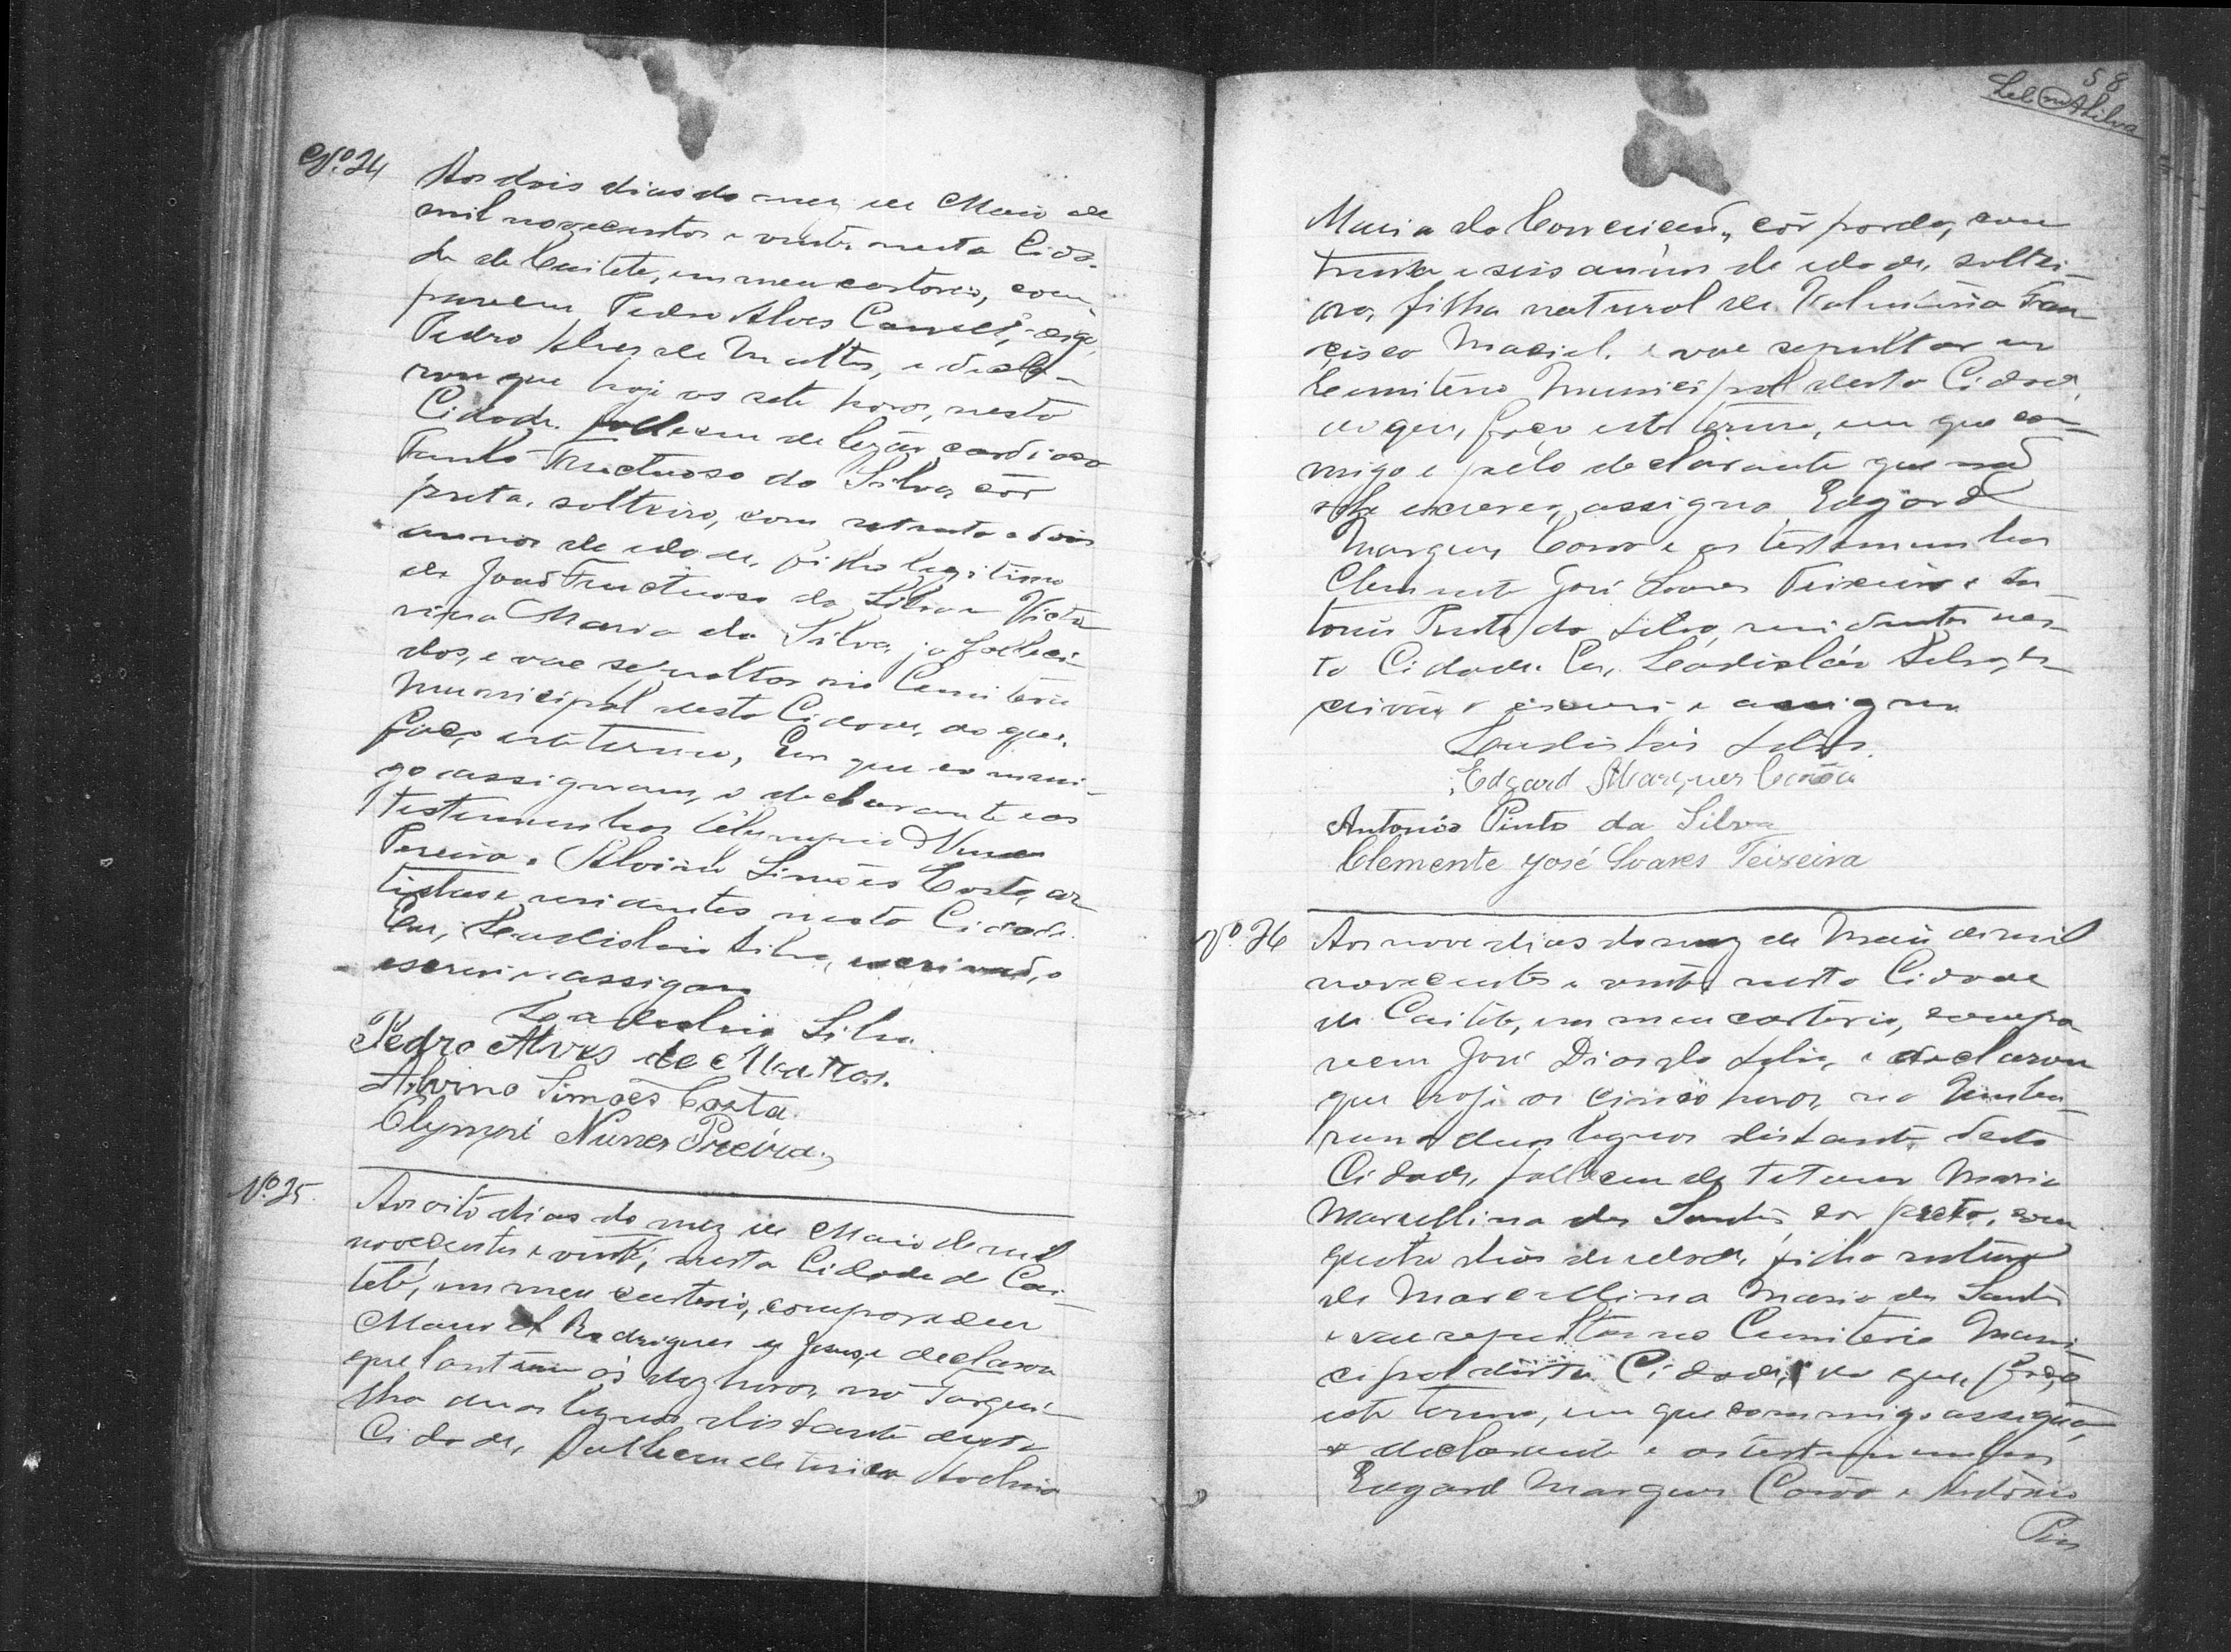 Nº. 24
Aos dois dias do mez de Maio de
mil novecentos e vinte nesta Cida-
de de Caiteté, em meu cartorio, com
pareceu Pedro Alves digo,
Pedro Alves de Mattos, e decla-
rou que hoje as sete horas, nesta
Cidade falleceu de lezão cardiaca
Fructuoso da Silva, côr
preta, solteiro, com setenta e dois
annos de idade, filho legitimo
de João Fructuoso da Silva e Victo
rina Maria da Silva, ja falleci-
dos, e vae sepultar no Cemiterio
Municipal desta Cidade, do que,
faço este termo, Em que commi-
go assignam, o declarante e as
testemunhas Olympio Nunes
Pereira e Alvino Simões Costa, ar
tistas e residentes nesta Cidade.
Eu, Leudislau Silva, escrivão, o
escrevi e assigno
Leudislau Silva
Pedro Alves de Mattos.
Alvino Simões Costa.
Olympi Nunes Preira,
Nº. 25.
Aos oito dias do mez de Maio de mil
novecentos e vinte, nesta Cidade de Cai-
teté, em meu cartorio, compareceu
Manoel Rodrigues de Jesus, e declarou
que hontem ás dez horas, no
duas leguas distante desta
Cidade, falleceu de
58
Silva
Maria da Conceição, côr parda, com
trinta e seis annos de idade, soltei-
ra, filha natural de Fran
cisca Maciel. e vae sepultar no
Cemiterio Municipal desta Cidade,
do que, faço este termo, em que com
migo e pélo declarante que não
sabe escrever, assigna Edgard
Marques e as testemunhas
Clemente José Soares Teixeira e An
tonio Pinto da Silva, residentes nes-
ta Cidade. Eu, Leudislau Silva, es
crivão o escrevi e assigno
Leudislau Silva.
Edgard Marques
Antonio Pinto da Silva
Clemente José Soares Teixeira
Nº. 26
Aos nove dias do mez de Maio de mil
novecentos e vinte, nesta Cidade
de Caiteté, em meu cartorio, compa
receu José da Silva, e declarou
que hoje as cinco horas, no
duas leguas distante desta
Cidade, falleceu de tetano Maria
Marcellina dos Santos, cor preta, com
quatro dias de idade, filha natural
de Marcellina Maria dos Santos
e vae sepultar no Cemiterio Muni-
cipal desta Cidade, do que, faço
este termo, em que commigo assigna,
o declarante e as testemunhas
Edgard Marques e Antonio
Pin